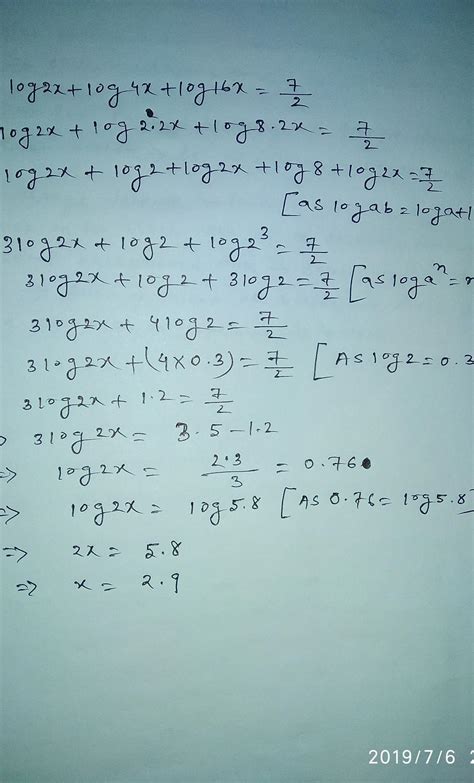 log2x + log4x + log16x = 7/2
log2x + log2.2x + log8.2x = 7/2
log2x + log2 + log2x + log8 + log2x = 7/2
[as logab = loga+l
3log2x + log2 + log2³ = 7/2
3log2x + log2 + 3log2 = 7/2 [as logaⁿ =
3log2x + 4log2 = 7/2
3log2x + (4x0.3) = 7/2 [As log2 = 0.3
3log2x + 1.2 = 7/2
3log2x = 3.5-1.2
=> log2x = 2.3/3 = 0.76
=> log2x = log5.8 [As 0.76 = log5.8]
=> 2x = 5.8
=> x = 2.9
2019/7/6